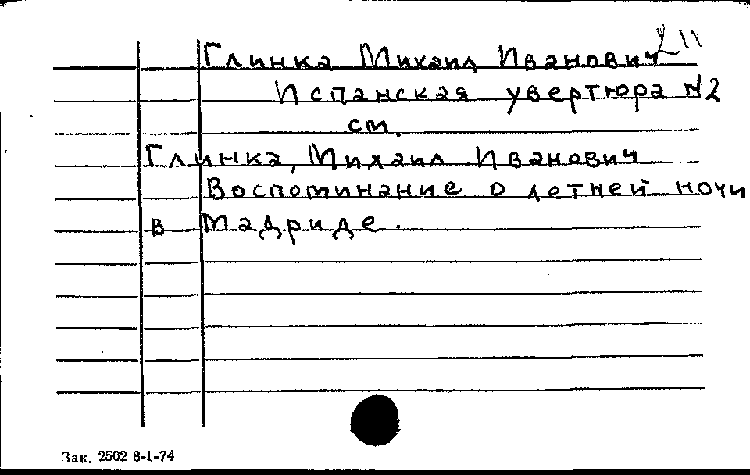 Глинка Михаил Иванович
Испанская увертюра №2
см.
Глинка, Михаил Иванович
Воспоминание о летней ночи
в Мадриде.
Зак. 2502 8-1-74